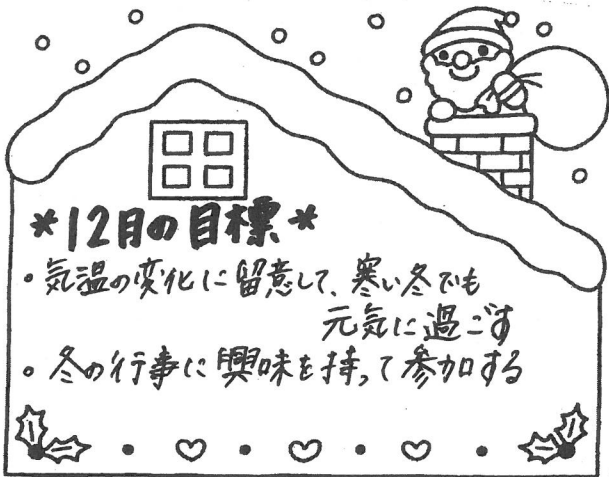 *12月の目標*
・気温の変化に留意して、寒い冬でも
元気に過ごす
・冬の行事に興味を持って参加する